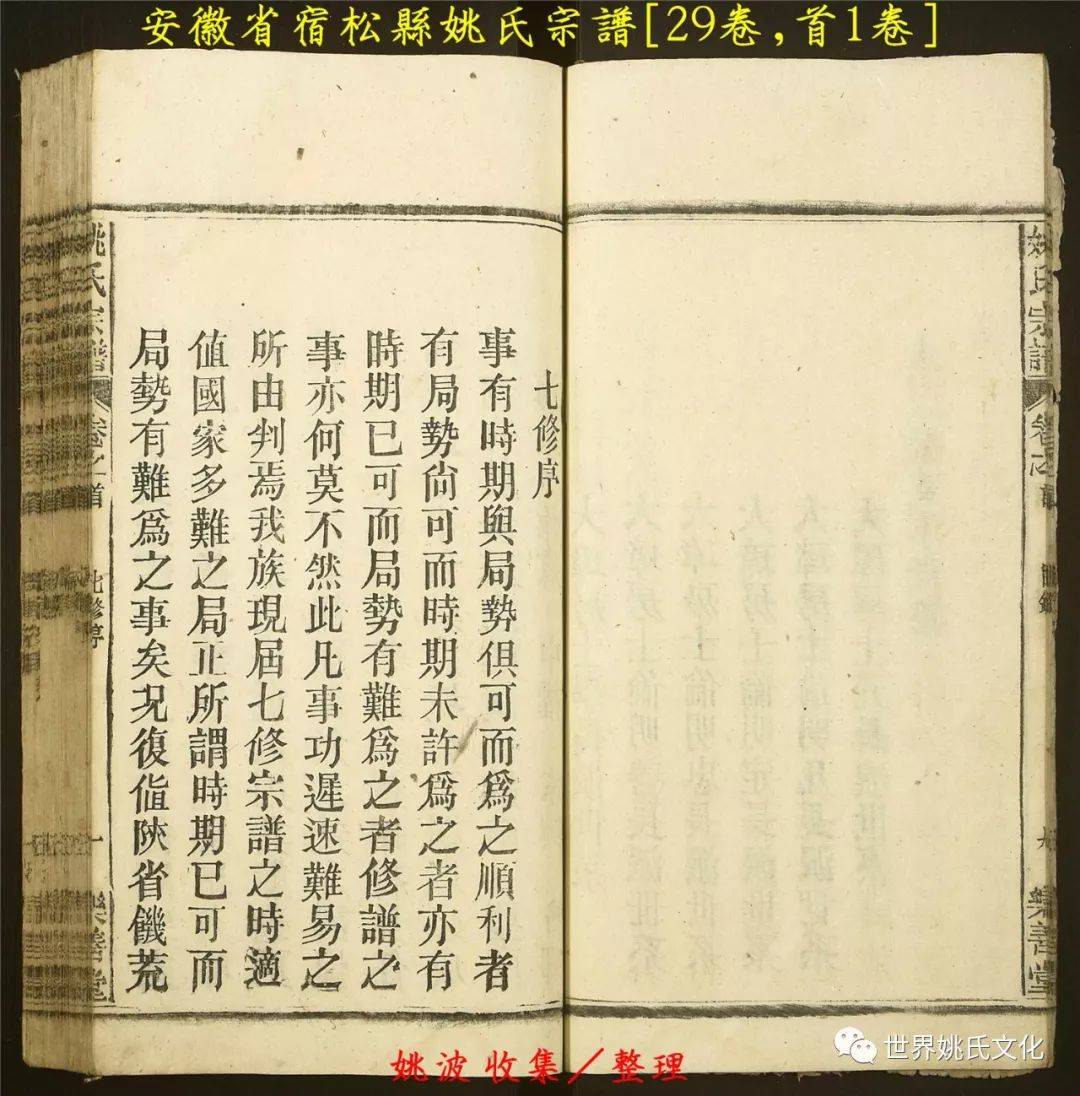 安徽省宿松縣姚氏宗譜[29卷,首1卷]
姚氏宗譜
樂善堂
七修序
事有時期與局勢俱可而為之順利者
有局勢尙可而時期未許為之者亦有
時期已可而局勢有難為之者修譜之
事亦何莫不然此凡事功遲速難易之
所由判焉我族現届七修宗譜之時適
值國家多難之局正所謂時期已可而
局勢有難為之事矣况復值陝省饑荒
姚氏宗譜
卷之首
七修序
一
樂善堂
姚波收集/整理
世界姚氏文化